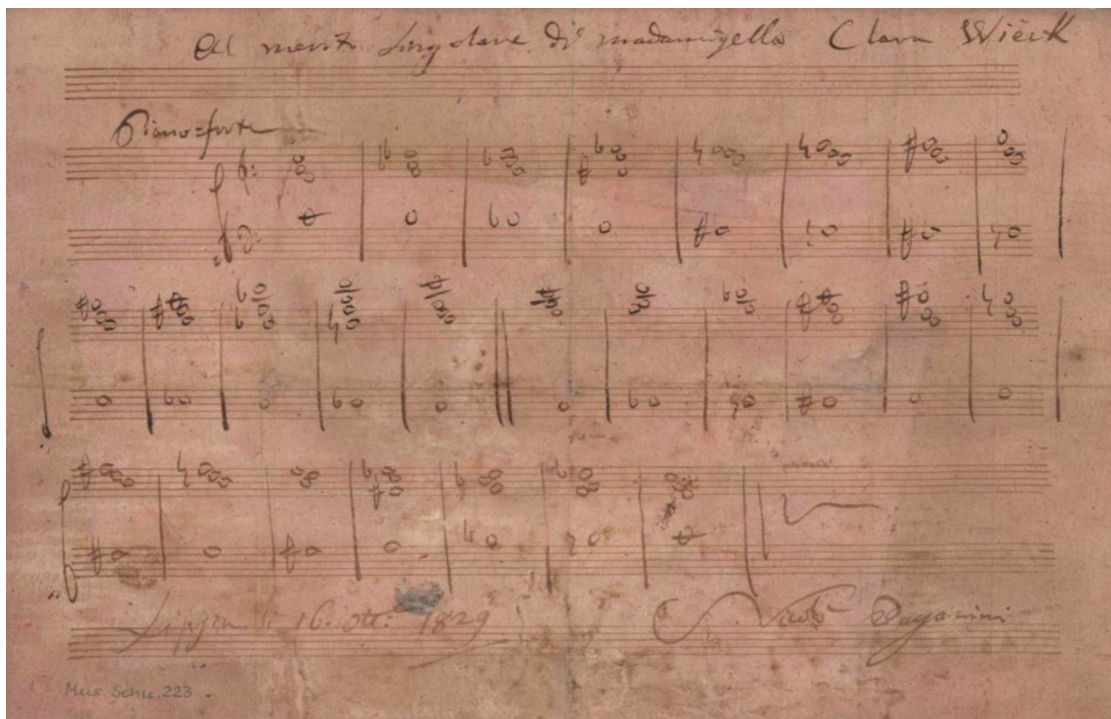 al merito singolare di madamigella Clara Wieck
Piano=forte
Lipsia li 16. ott: 1829
Nicolò Paganini
Mus. Schu. 223.